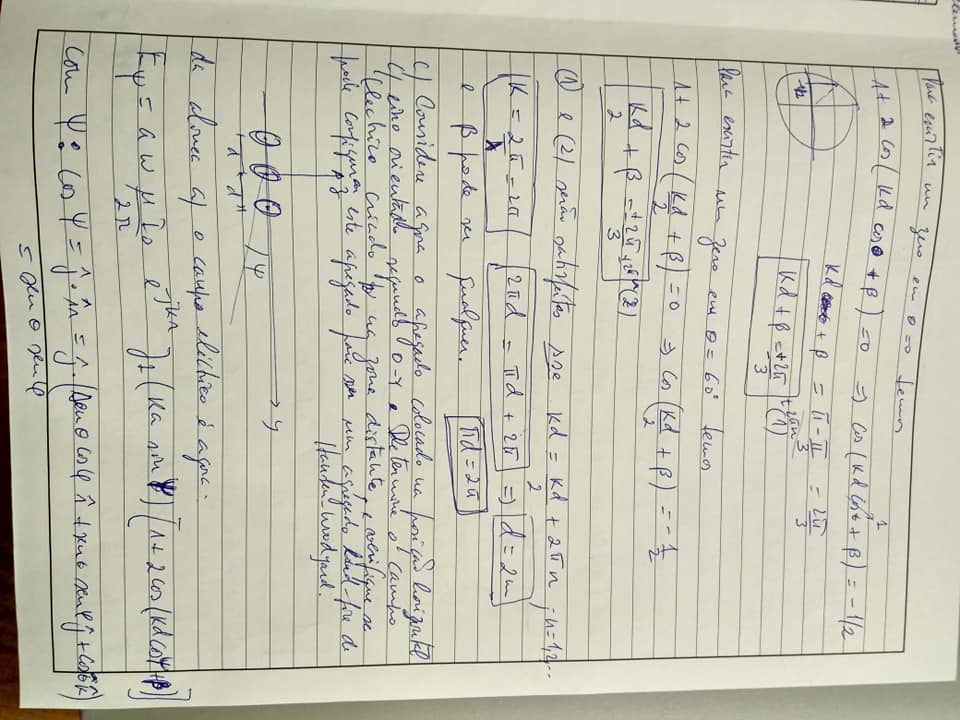 Para existir um zero em θ=0 temos
1+ 2 cos(Kd cosθ + β)=0 ⇒ cos(Kd cosθ + β) = -1/2
1
Kd + β = π - π/3 = 2π/3
-1/2
Kd + β = ±2π/3 + 2πn (1)
Para existir um zero em θ = 60° temos
1+ 2 cos(Kd/2 + β)=0 ⇒ cos(Kd/2 + β) = -1/2
Kd/2 + β = ±2π/3 + 2πn (2)
(1) e (2) serão satisfeitas sse Kd = Kd/2 + 2πn ; n=1,2,..
K = 2π/λ = 2π 2πd = πd + 2π ⇒ d = 2m
e β pode ser qualquer. πd = 2π
c) Considere agora o agregado colocado na posição horizontal
c/ eixo orientado segundo O-Y. Determine o campo
Electrico criado na zona distante, e verifique se
pode configurar este agregado para ser um agregado end-fire de
Hansen-Woodyard.
z
y
d d ψ
da alinea a) o campo eléctrico é agora.
Eψ = a w μ I0/2r e^-jkr J1(Ka sinψ) [1+2cos(Kd cosψ+β)]
com ψ: cosψ = ĵ. r̂ = ĵ.(senθ cosφ î + senθ senφ ĵ + cosθ k̂)
= senθ senφ